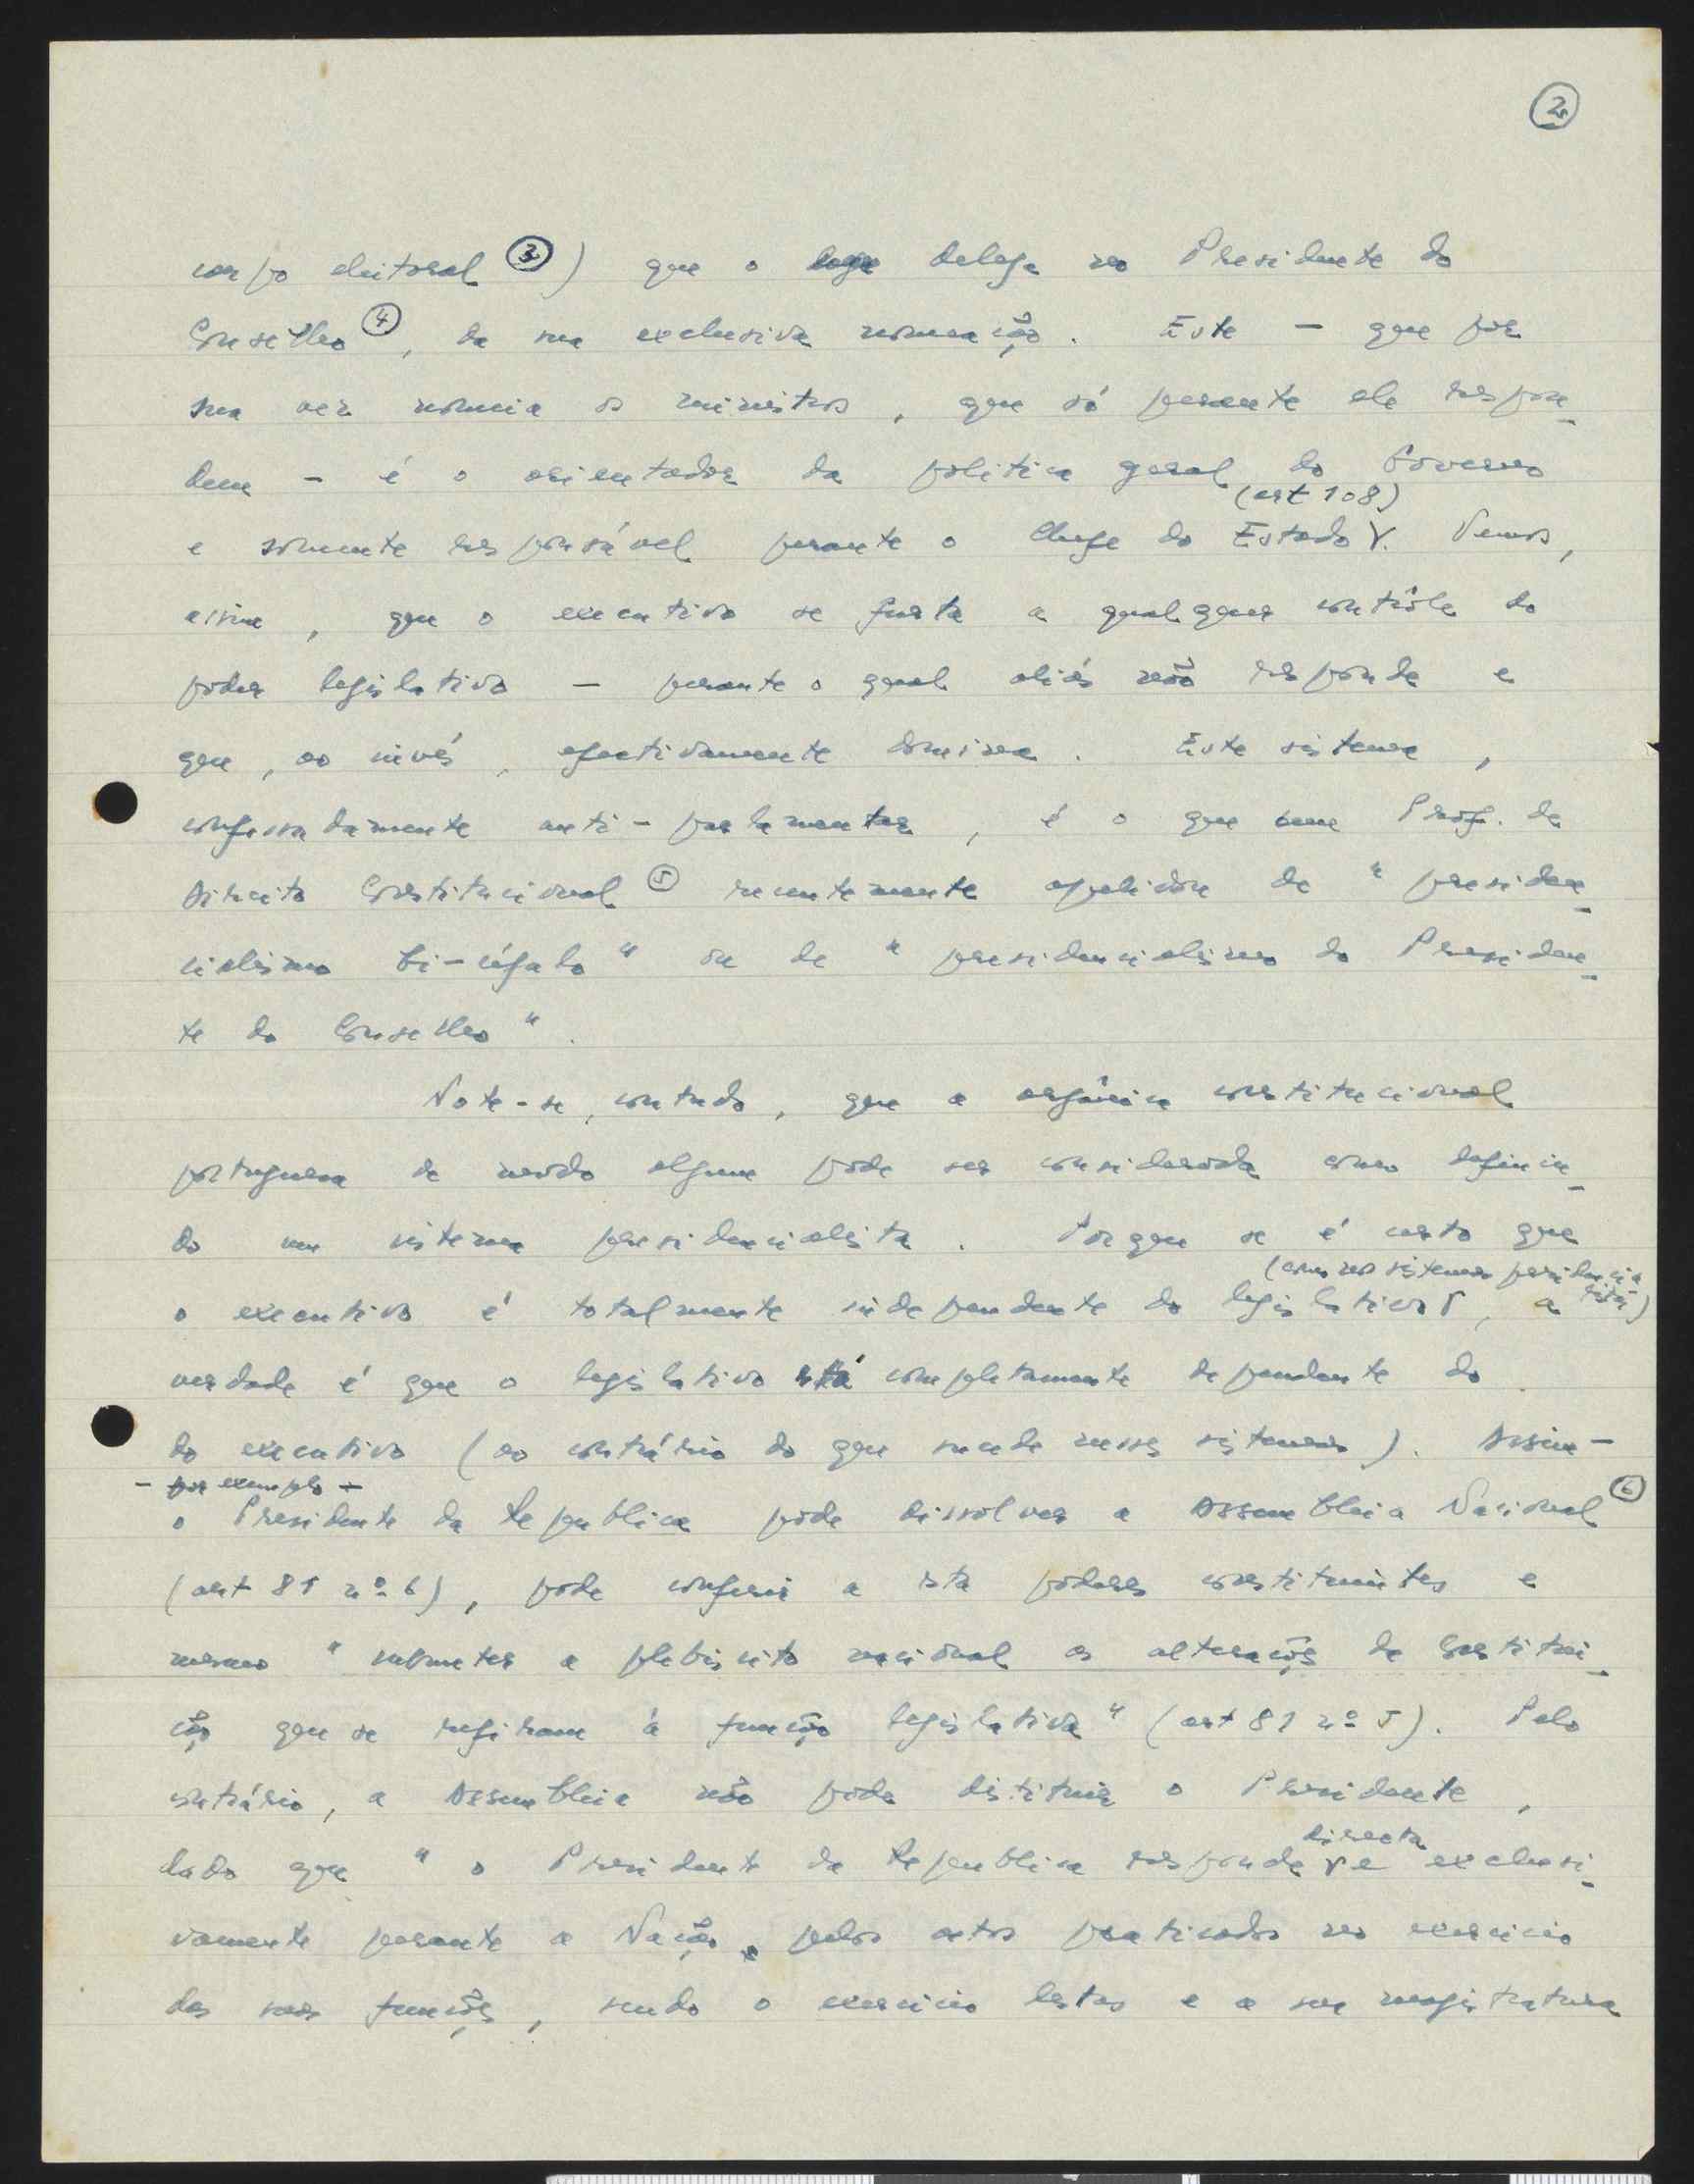 2
corpo eleitoral (3)) que o logo delega no Presidente do
Conselho (4), da sua exclusiva nomeação. Este – que por
sua vez nomeia os ministros, que só perante ele respon-
dem – é o orientador da politica geral do Governo
(art 108)
e somente responsável perante o Chefe do Estado. Vemos,
assim, que o executivo se furta a qualquer contrôle do
poder legislativo – perante o qual aliás não responde e
que, ao invés, efectivamente domina. Este sistema,
confessadamente anti-parlamentar, é o que um Prof. de
Direito Constitucional (5) recentemente apelidou de "presiden-
cialismo bi-céfalo" ou de "presidencialismo do Presiden-
te do Conselho".
Note-se, contudo, que a orgânica constitucional
portuguesa de modo algum pode ser considerada como definin-
do um sistema presidencialista. Porque se é certo que
(como nos sistemas presidencia
listas)
o executivo é totalmente independente do legislativo, a
verdade é que o legislativo está completamente dependente do
do executivo (ao contrário do que sucede nesses sistemas). Assim –
– por exemplo –
o Presidente da Republica pode dissolver a Assembleia Nacional (6)
(art 81 nº 6), pode conferir a esta poderes constituintes e
mesmo "submeter a plebiscito nacional as alterações da Constitui-
ção que se refiram à função legislativa" (art 81 nº 5). Pelo
contrário, a Assembleia não pode distituir o Presidente,
dado que "o Presidente da Republica responde
directa
e exclusi-
vamente perante a Nação pelos actos praticados no exercicio
das suas funções, sendo o exercicio destas e a sua magistratura